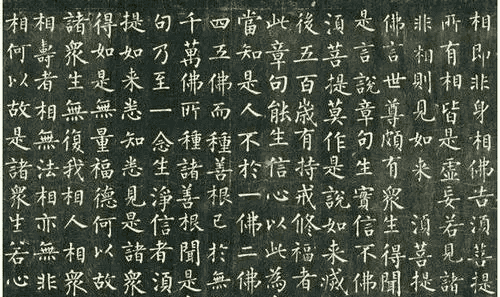 相即非身相佛告須菩提
所有相皆是虛妄若見諸
非相則見如來　須菩提
佛言世尊頗有眾生得聞
是言說章句生實信不佛
須菩提莫作是說如來滅
後五百歲有持戒修福者
此章句能生信心以此為
當知是人不於一佛二佛
四五佛而種善根已於無
千萬佛所種諸善根聞是
句乃至一念生淨信者須
提如來悉知悉見是諸眾
得如是無量福德何以故
諸眾生無復我相人相眾
相壽者相無法相亦無非
相何以故是諸眾生若心